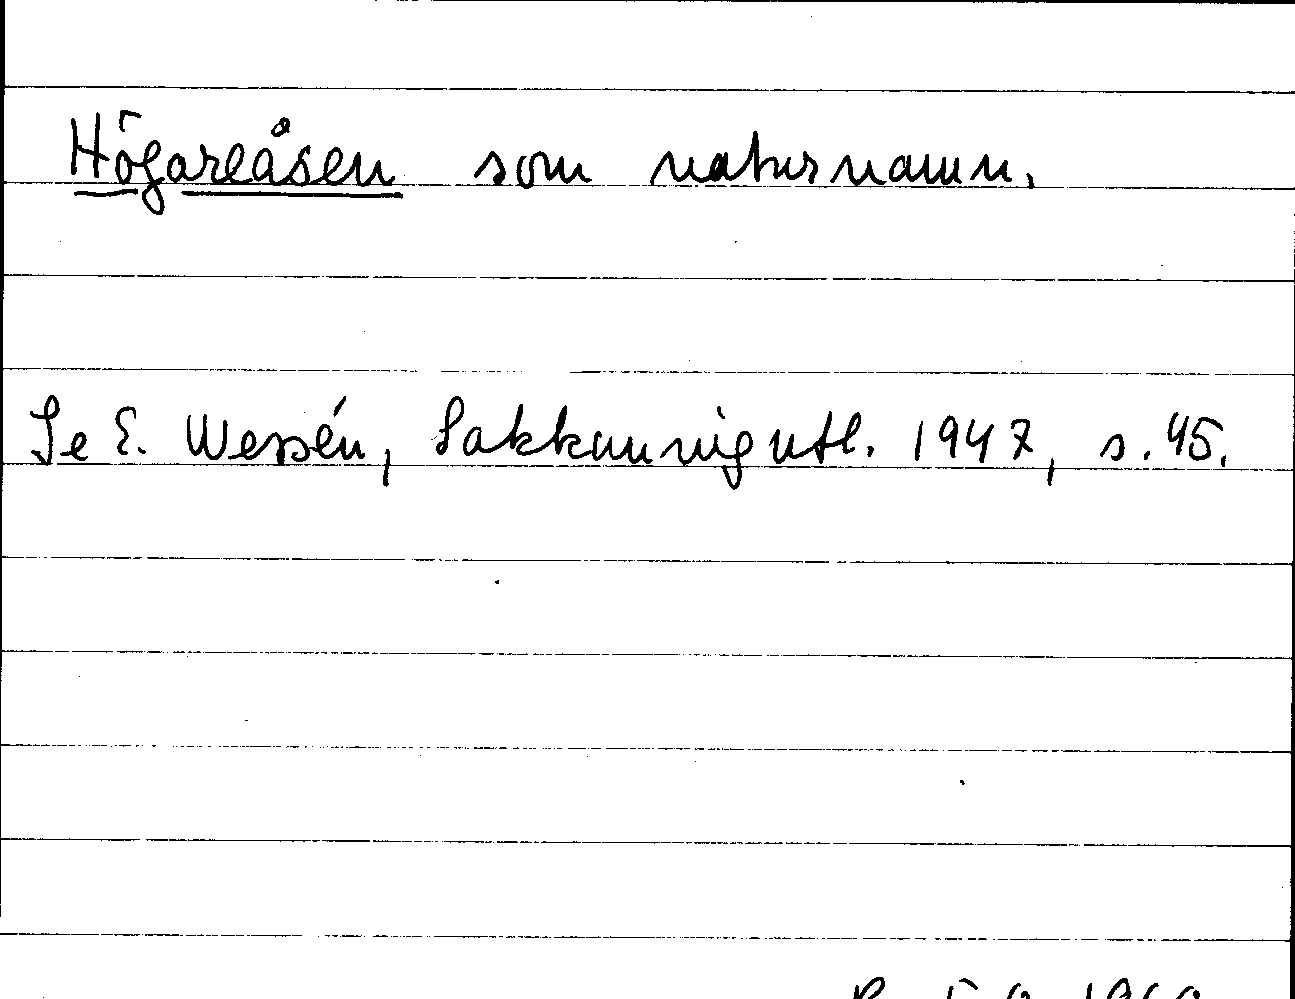 Högareåsen som naturnamn.
Se E. Wessén, Sakkunnigutl. 1947, s. 45.